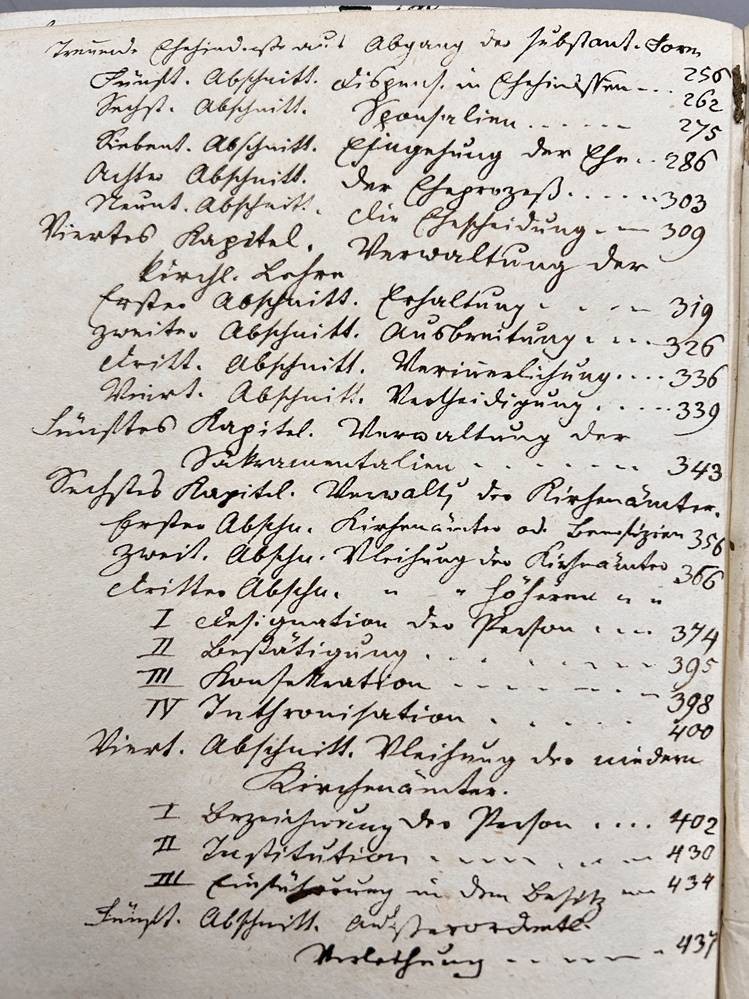 Trennende Ehehindernisse aus Abgang der substant. Form
256
Fünft. Abschnitt. Dispens. in Ehehindernissen
262
Sechst. Abschnitt. Sponsalien
275
Siebent. Abschnitt. Eingehung der Ehe 286
Achter Abschnitt. Der Eheprozeß. 303
Neunt. Abschnitt. Die Ehescheidung. 309
Viertes Kapitel. Verwaltung der
kirchl. Lehre
Erster Abschnitt. Erhaltung 319
Zweiter Abschnitt. Ausbreitung 326
Dritt. Abschnitt. Verinnerlichung 336
Viert. Abschnitt. Vertheidigung 339
Fünftes Kapitel. Verwaltung der
Sakramentalien 343
Sechstes Kapitel. Verwaltg der Kirchenämter.
Erster Abschn. Kirchenämter od. Benefizien 356
Zweit. Abschn. Vleihung der Kirchenämter 366
Dritter Abschn. " " höheren " "
I Designation der Person 374
II Bestätigung 395
III Konsekration 398
IV Inthronisation 400
Viert. Abschnitt. Vleihung der niedern
Kirchenämter.
I Bezeichnung der Person 402
II Institution 430
III Einführung in den Besitz 434
Fünft. Abschnitt. Außerordentl.
Verleihung 437